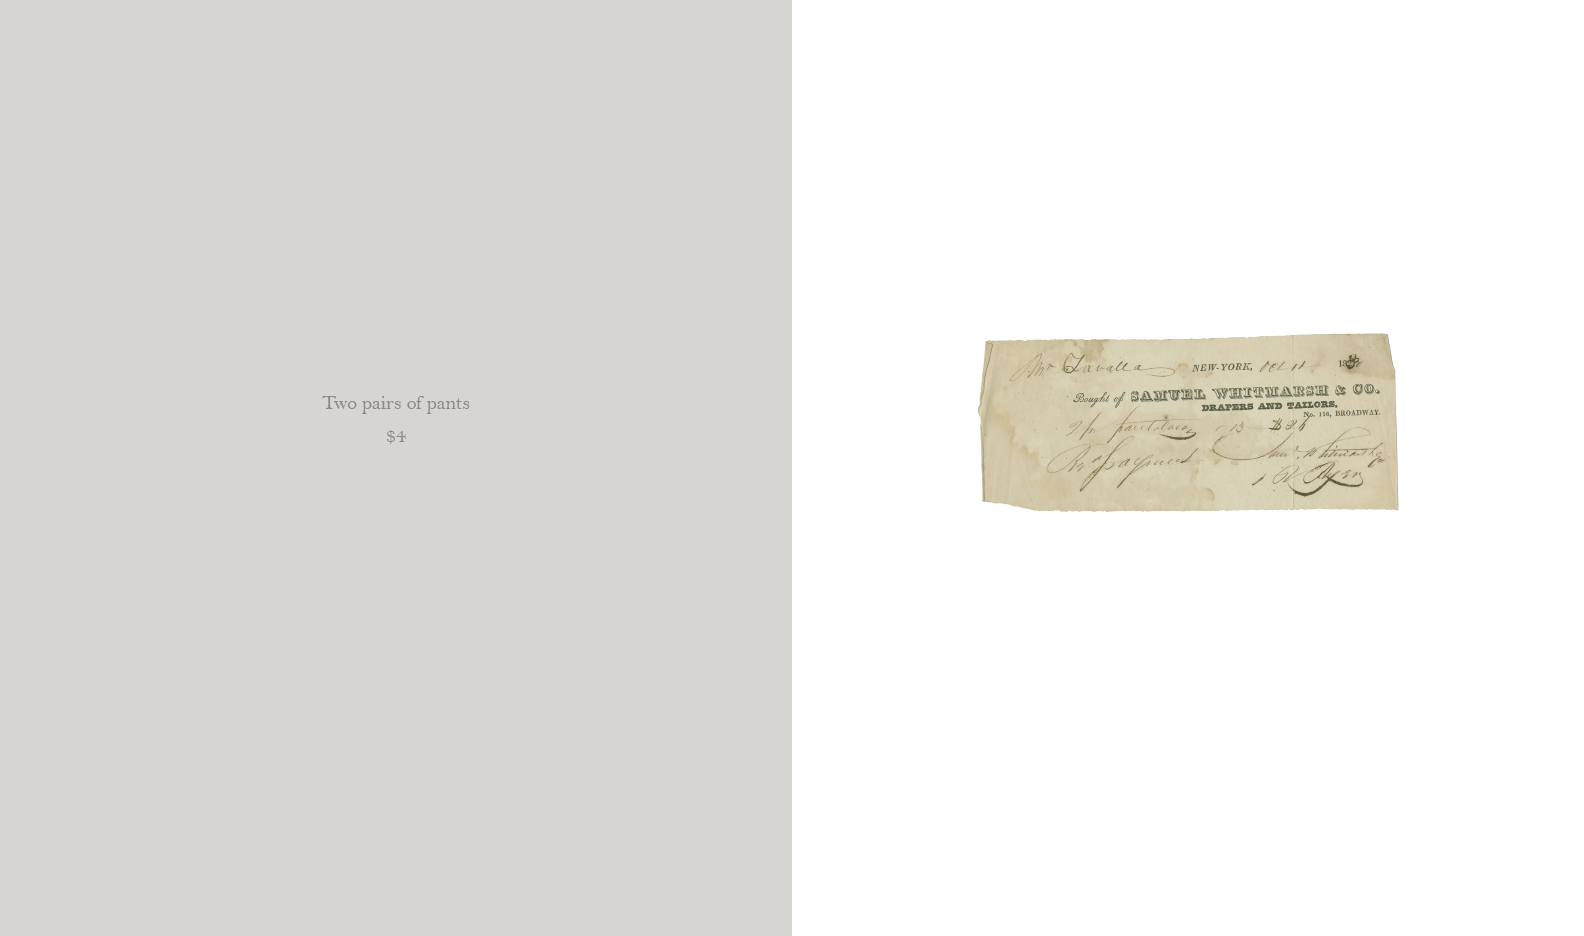 Two pairs of pants
$4
Mr Zavalla NEW-YORK, Oct 11 18
Bought of SAMUEL WHITMARSH & CO.
DRAPERS AND TAILORS,
No. 116, BROADWAY.
2 pr pantaloons 13 $26
Rec. payment Saml Whitmarsh & Co